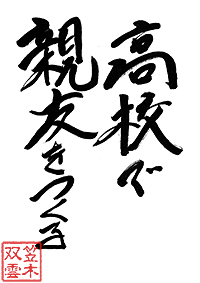 高校で
親友をつくる
笠木
双雲